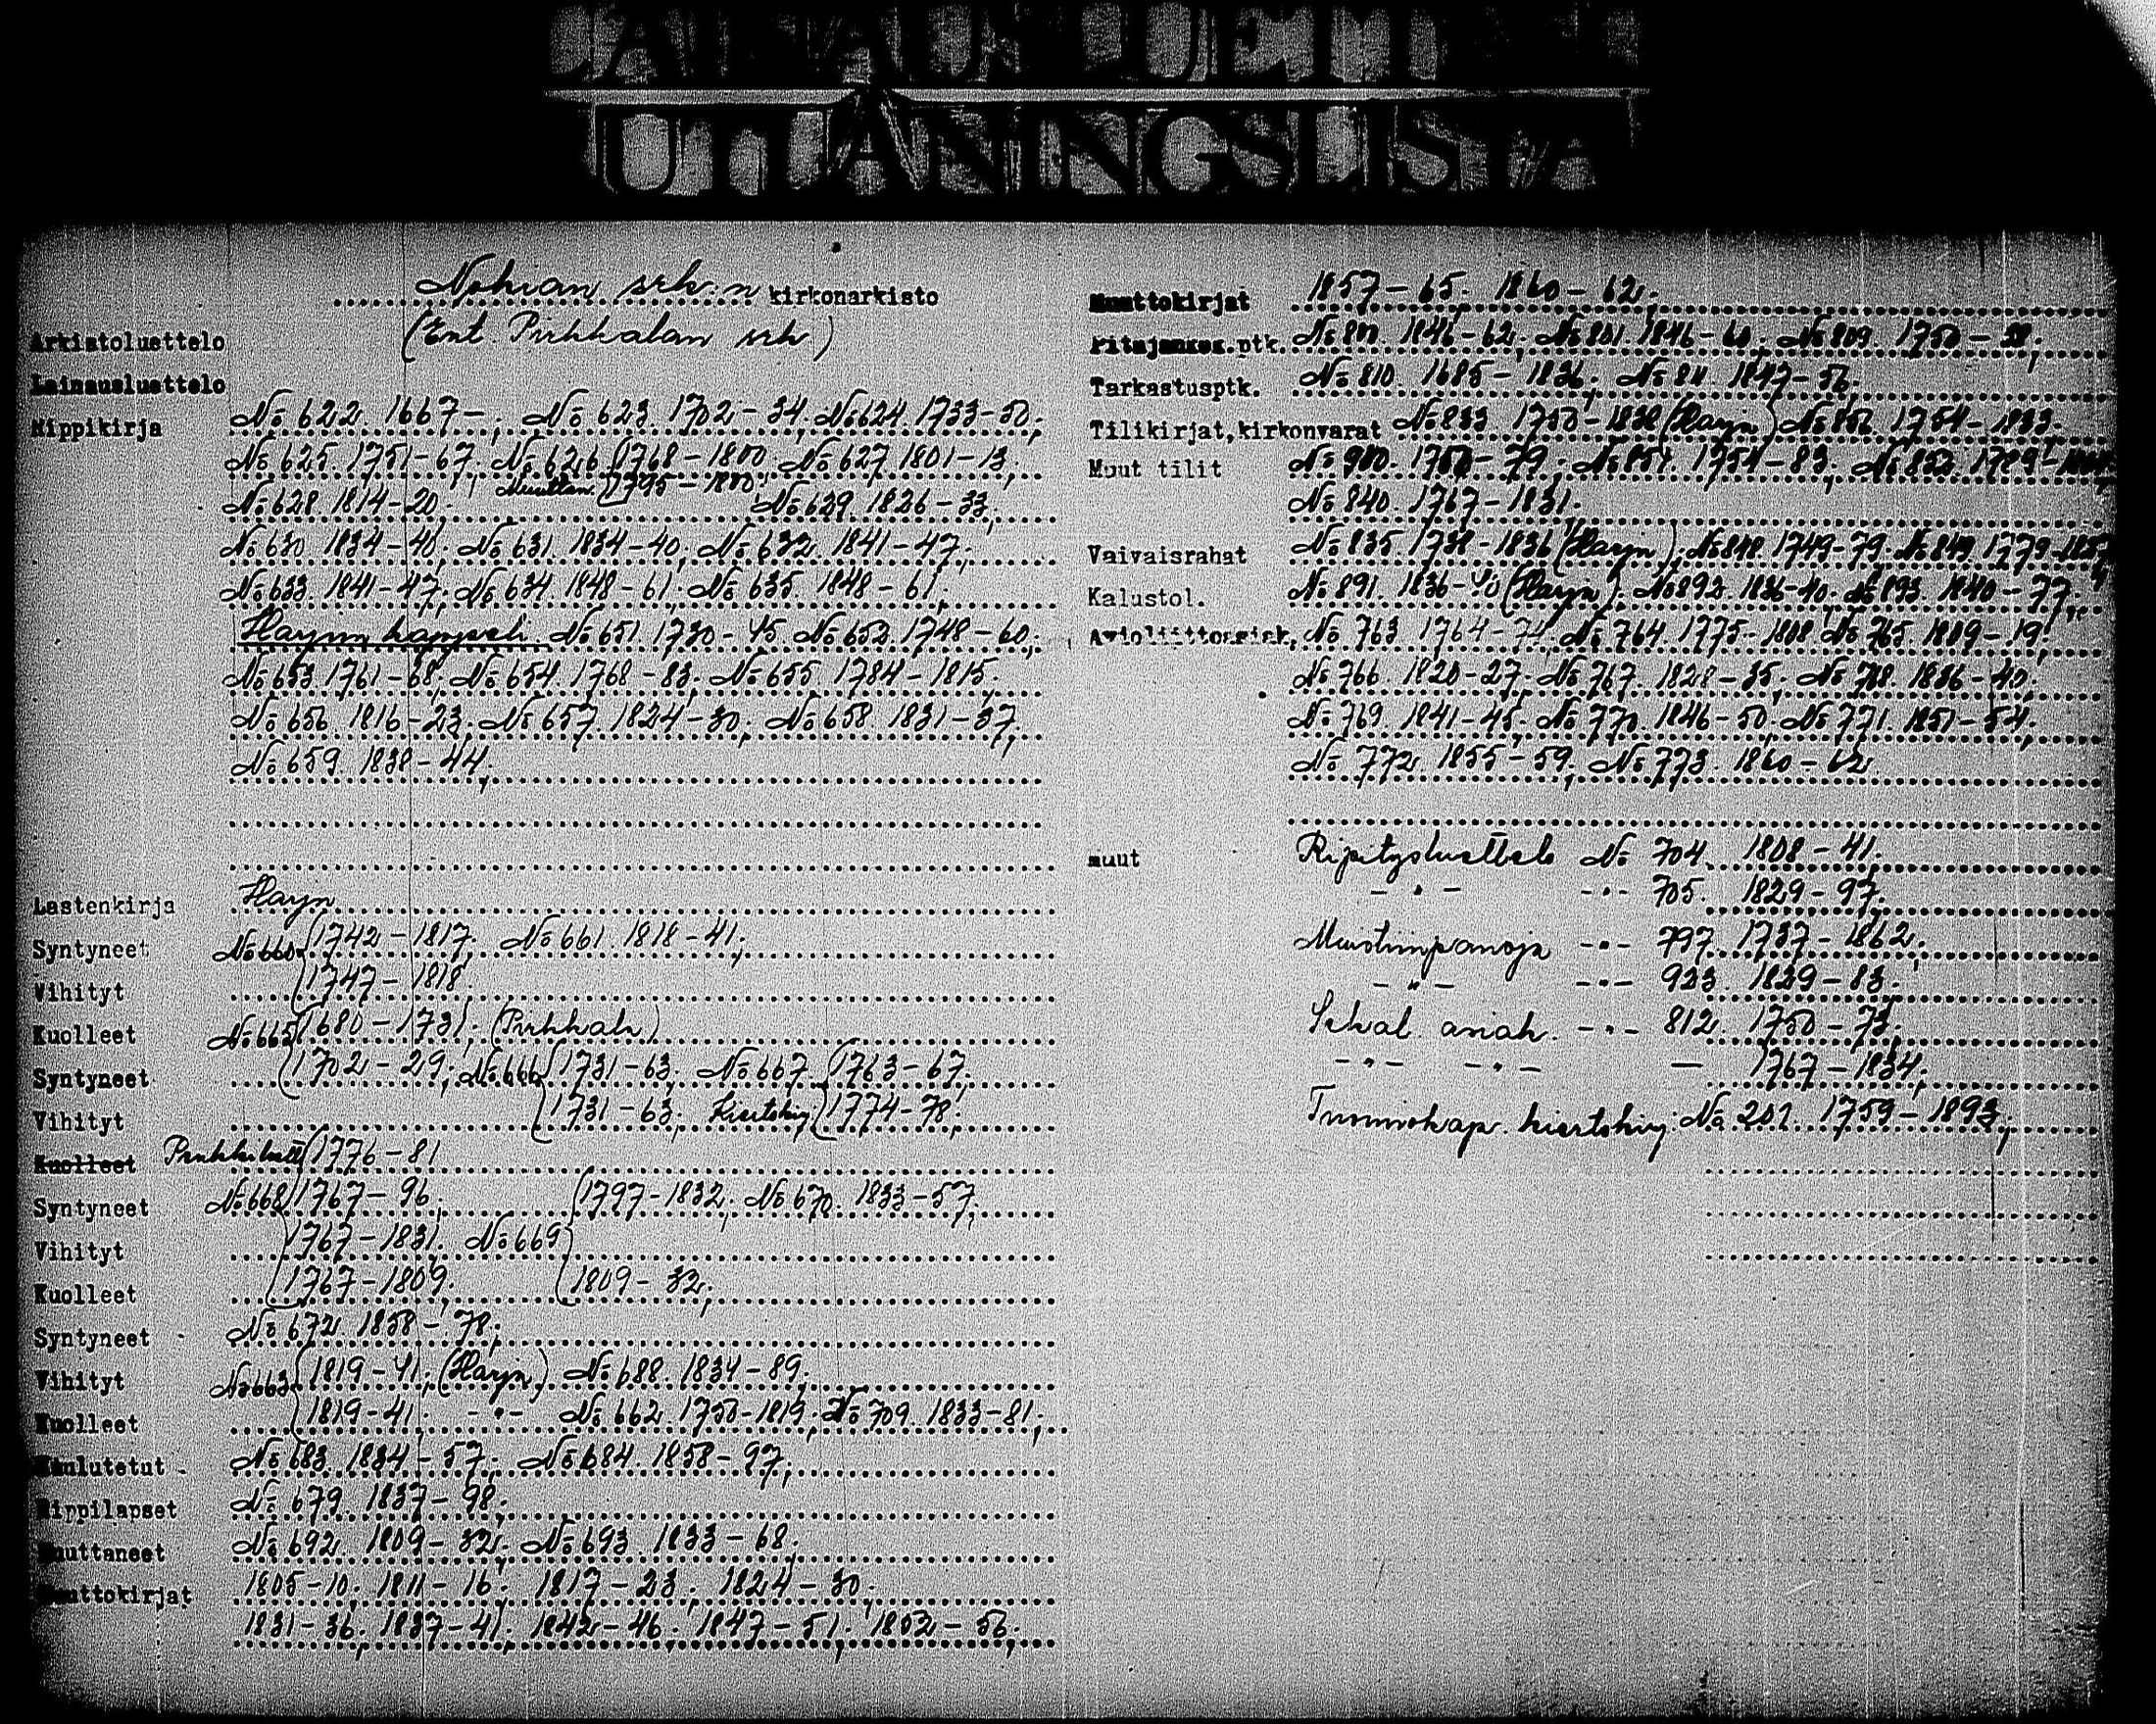 LAINAUSLUETTELO
UTLÅNINGSLISTA
Nokian srk:n kirkonarkisto
(Ent. Pirkkalan srk)
Arkistoluettelo
Lainausluettelo
Rippikirja No 622. 1667-; No 623. 1702-34; No 624. 1733-50;
No 625. 1751-67; No 626 1768-1800; No 627. 1801-13;
Muuttan. 1795-1800;
No 628. 1814-20; No 629. 1826-33;
No 630. 1834-40; No 631. 1834-40; No 632. 1841-47;
No 633. 1841-47; No 634. 1848-61; No 635. 1848-61;
Harjun kappseli. No 651. 1730-45; No 652. 1748-60;
No 653. 1761-68; No 654. 1768-83; No 655. 1784-1815;
No 656. 1816-23; No 657. 1824-30; No 658. 1831-37;
No 659. 1838-44;
Lastenkirja Harju
Syntyneet No 660 1742-1817; No 661. 1818-41;
Vihityt 1747-1818.
Kuolleet No 665 1680-1731; (Pirkkala)
Syntyneet 1702-29; No 666 1731-63; No 667. 1763-67;
Vihityt 1731-63; Kiertokirj. 1774-78;
Kuolleet 1776-81
Syntyneet No 668 1767-96; 1797-1832; No 670. 1833-57;
Vihityt 1767-1831; No 669
Kuolleet 1767-1809; 1809-32;
Syntyneet No 672. 1858-78;
Vihityt No 663 1819-41; (Harju) No 688. 1834-89;
Kuolleet 1819-41; -"- No 662. 1750-1819; No 709. 1833-81;
Kuulutetut No 683. 1834-57; No 684. 1858-97;
Rippilapset No 679. 1837-98;
Muuttaneet No 692. 1809-32; No 693. 1833-68;
Muuttokirjat 1805-10; 1811-16; 1817-23; 1824-30;
1831-36; 1837-41; 1842-46; 1847-51; 1852-56;
Muuttokirjat 1857-65; 1860-62;
Pitäjänkok.ptk. 1846-62; No 801. 1846-60; No 809.
Tarkastusptk. No 810. 1685-1836; No 811. 1847-56;
Tilikirjat,kirkonvarat No 833. (Harju) 1754-1833.
Muut tilit No 851. 1754-83; No 852. 1789-
No 840. 1767-1831.
Vaivaisrahat No 835. 1738-1836 (Harju); No 848. 1749-79; No 849. 1779-
Kalustol. No 891. 1836-40 (Harju); No 892. 1836-40; No 893. 1840-77;
Avioliittoesisk. No 763. 1764-74; No 764. 1775-1808; No 765. 1809-19;
No 766. 1820-27; No 767. 1828-35; No 768. 1836-40;
No 769. 1841-45; No 770. 1846-50; No 771. 1851-54;
No 772. 1855-59; No 773. 1860-62
muut Ripitysluettelo No 704. 1808-41.
-"- -"- 705. 1829-97.
Muistiinpanoja -"- 797. 1737-1862;
-"- -"- 923. 1829-83.
Sekal. asiak. -"- 812. 1750-73.
-"- -"- — 1767-1834;
Tuomiokap. kiertokirj: No 201. 1759-1893;